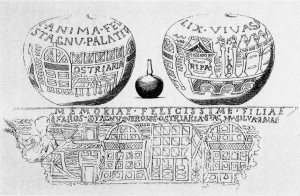 ANIMA FEL
STAGNU PALATIU
OSTRIARIA
IX VIVAS
RIPA
MEMORIAE FELICISSIME FILIAE
FAROS STAGNU NERONIS OSTRIARIA STAGNU SILVA